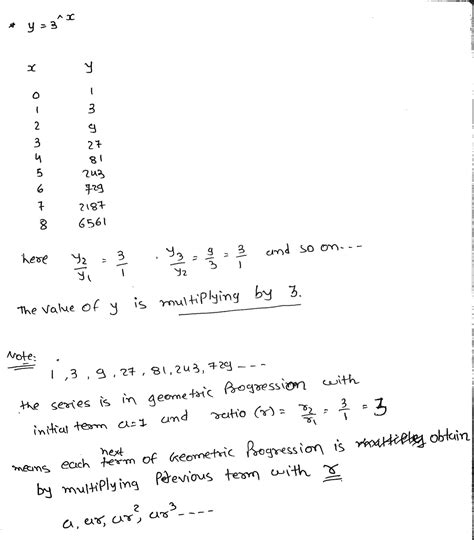 * y = 3^x
x y
0 1
1 3
2 9
3 27
4 81
5 243
6 729
7 2187
8 6561
here y2/y1 = 3/1 . y3/y2 = 9/3 = 3/1 and so on---
The value of y is multiplying by 3.
Note:
1, 3, 9, 27, 81, 243, 729 ---
the series is in geometric Progression with
initial term a=1 and ratio (r) = r2/r1 = 3/1 = 3
means each next term of Geometric Progression is obtain
by multiplying Perevious term with r
a, ar, ar², ar³ ----